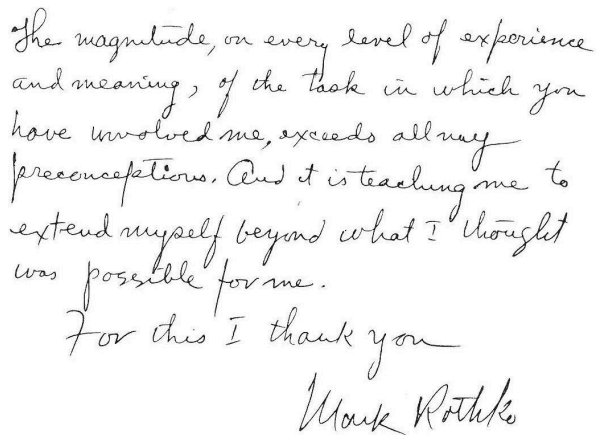 The magnitude, on every level of experience
and meaning, of the task in which you
have involved me, exceeds all my
preconceptions. And it is teaching me to
extend myself beyond what I thought
was possible for me.
For this I thank you
Mark Rothko